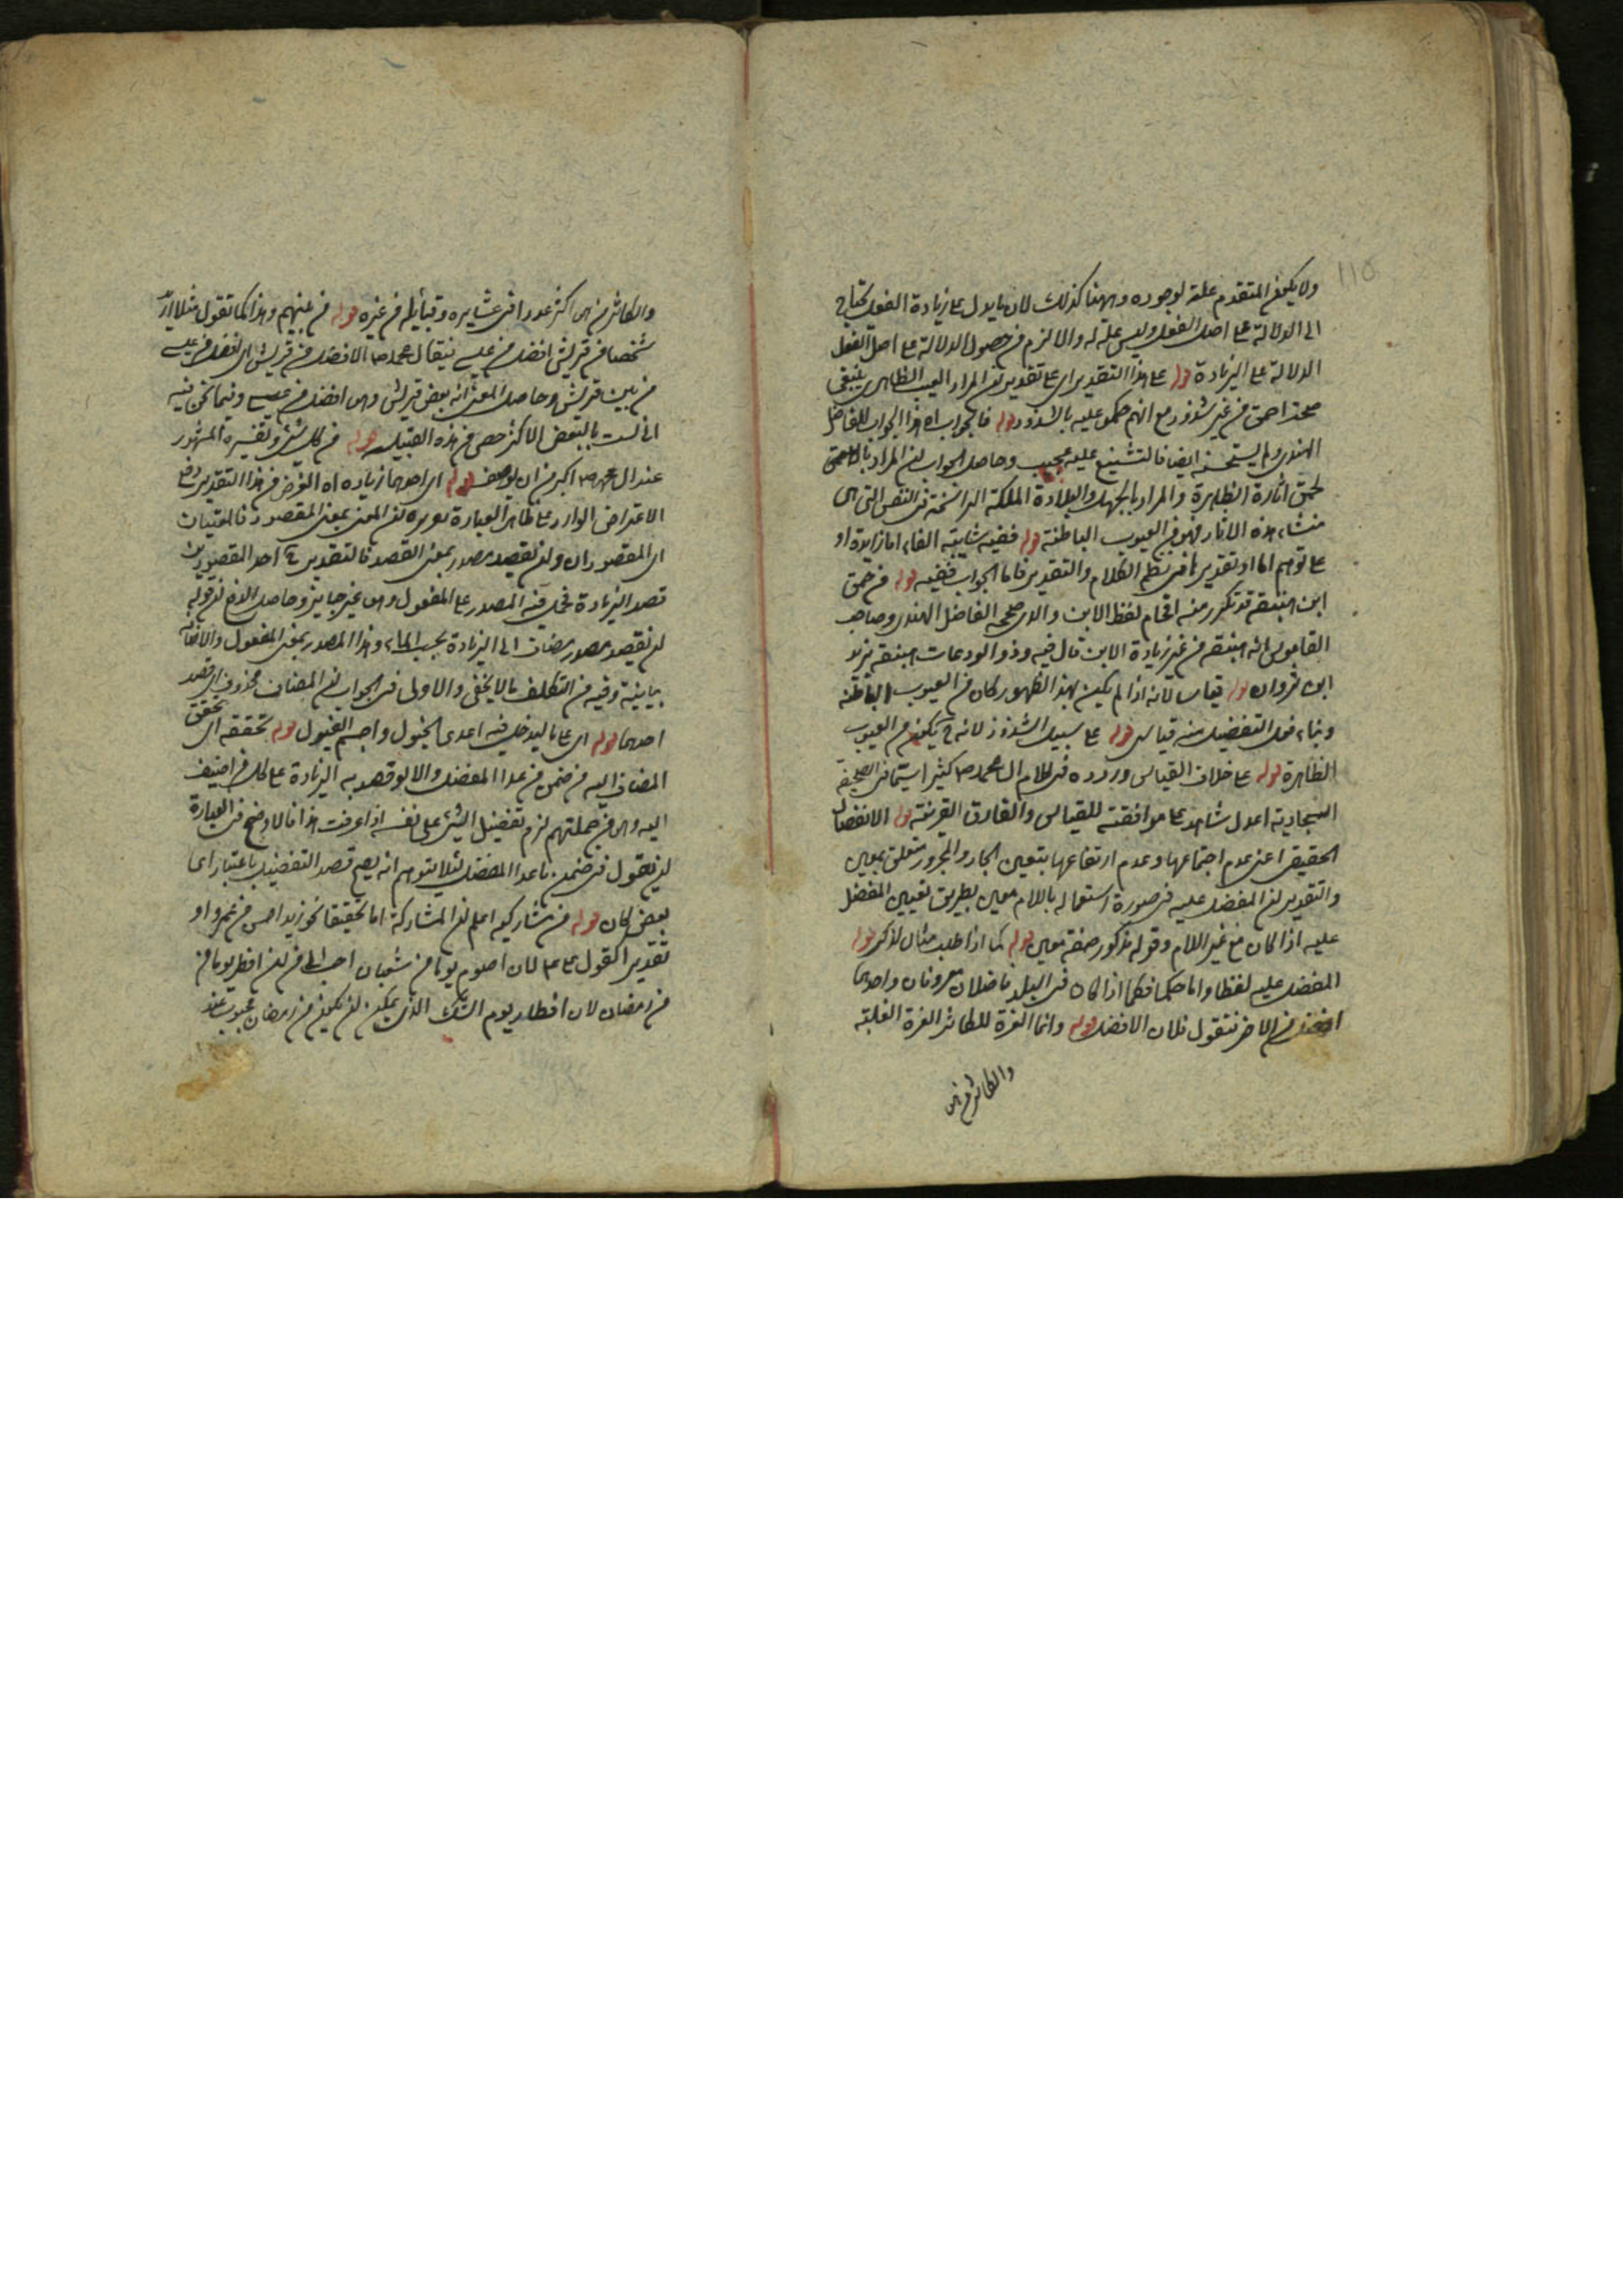 ١١٥
ولا يكون المتقدم علة لوجوده وههنا كذلك لان ما يدل على زيادة الفعل يحتاج
الى الدلالة على اصل الفعل وليس علة له والا لزم من حصول الدلالة على اصل الفعل
الدلالة على الزيادة قوله على هذا التقدير اى على تقدير ان المراد العيب الظاهرى ينبغى
صحة احمق من غير شذوذ مع انهم حكموا عليه بالشذوذ قوله فالجواب اه هذا الجواب للفاضل
الهندى ولم يستحسنه ايضا فالتشنيع عليه عجيب وحاصل الجواب ان المراد بالاحمق
لحمق اثارة الظاهرة والمراد بالجهل والبلادة الملكة الراسخة فى النفس التى هى
منشاء هذه الاثار فهو من العيوب الباطنة قوله ففيه شايبة الفاء اما زايدة او
على توهم اما او تقديرها فى نظم الكلام والتقدير فاما الجواب ففيه قوله من حمق
ابن هبنقة قد تكرر منه اقحام لفظ الابن والذى صححه الفاضل الهندى وصاحب
القاموس انه هبنقة من غير زيادة الابن قال فيه وذو الودعات هبنقة يزيد
ابن ثروان قوله قياس لانه اذا لم يكن بهذا الظهور كان من العيوب الباطنة
وبناء فعل التفضيل منه قياس قوله على سبيل الشذوذ لانه ح يكون من العيوب
الظاهرة قوله على خلاف القياس وروده فى كلام ال محمد ص كثيرا سيما فى الصحيفة
السجادية اعدل شاهد على موافقته للقياس والفارق القرينة قوله الانفصال
الحقيقى اعنى عدم اجتماعها وعدم ارتفاعها بتعيين الجار والمجرور متعلق بمعين
والتقدير ان المفضل عليه فى صورة استعماله باللام معين بطريق تعيين المفضل
عليه اذا كان مع غير اللام وقوله مذكور صفة معين قوله كما اذا طلب مثال لذكر قوله
المفضل عليه لفظا واما حكما فكما اذا كان فى البلد فاضلان معروفان واحدهما
افضل من الاخر فتقول فلان الافضل قوله وانما العزة للكاثر العزة الغلبة
والكاثر من هى
والكاثر من هى اكثر عددا فى عشايره وقبايله من غيره قوله من بينهم وهذا كما تقول مثلا ان
شخصا من قريش افضل من عيسى فيقال محمد ص الافضل من قريش اى افضل من عيسى
من بين قريش وحاصل المعنى انه بعض قريش وهى افضل من عيسى وفيما نحن فيه
انى لست بالبعض الاكثر حصى من هذه القبيلة قوله من كل شئ وتفسيره المشهور
عند ال محمد ص اكبر من ان يوصف قوله اى احدهما زيادة اه الغرض من هذا التقدير دفع
الاعتراض الوارد على ظاهر العبارة لوروده ان المعنى بمعنى المقصود فالمعنيان
اى المقصودان وان يقصد مصدر بمعنى القصد فالتقدير ح احد المقصودين
قصد الزيادة فحمل فيه المصدر على المفعول وهى غير جايز وحاصل الدفع ان قوله
ان يقصد مصدر مضاف الى الزيادة بحسب المأل وهذا المصدر بمعنى المفعول والاضافة
بيانية وفيه من التكلف ما لا يخفى والاولى فى الجواب ان المضاف محذوف اى قصد
احدهما قوله اى على ما ليدخل فيه اعدى الخيول واجسم الفيول قوله تحققه اى تحقق
المضاف اليه فى ضمن من عدا المفضل والا لو قصد به الزيادة على كل من اضيف
اليه وهى من جملتهم لزم تفضيل الشئ على نفسه اذا عرفت هذا فالاوضح فى العبارة
ان يقول فى ضمن ما عدا المفضل لئلا يتوهم انه يصح قصد التفضيل باعتبار اى
بعض كان قوله من مشاركيه اعلم ان المشاركة اما تحقيقا نحو زيد احسن من عمرو او
تقديرا كقول على ع لان اصوم يوما من شعبان احب الى من ان افطر يوما من
من رمضان لان افطار يوم الشك الذى يمكن ان يكون من رمضان محبوب عند